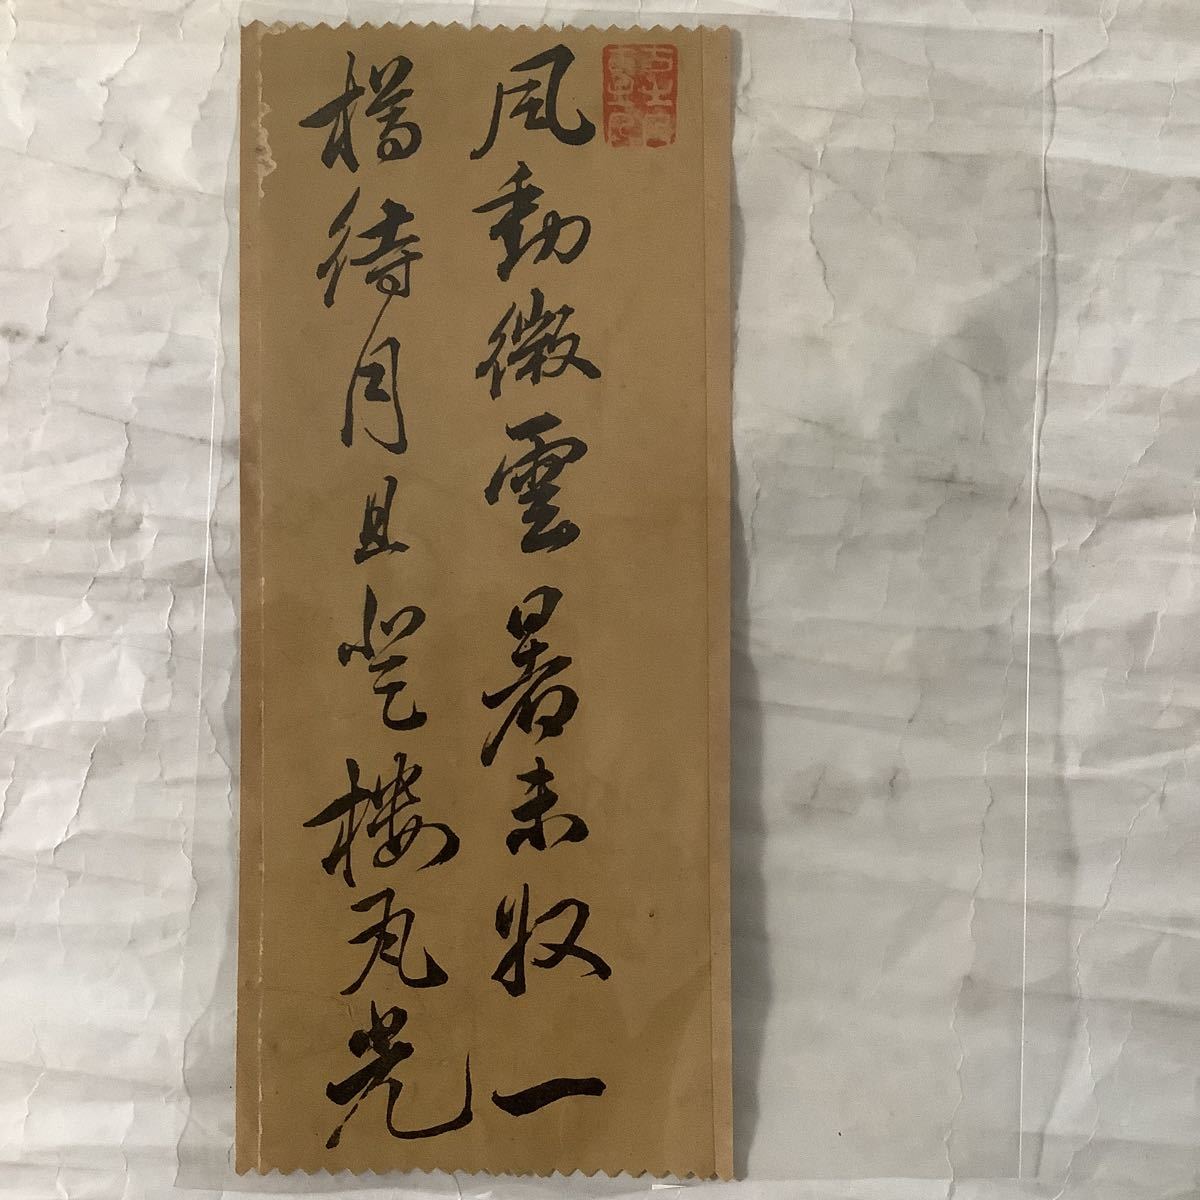 風動微雲暑未收一
樽待月且登樓風光